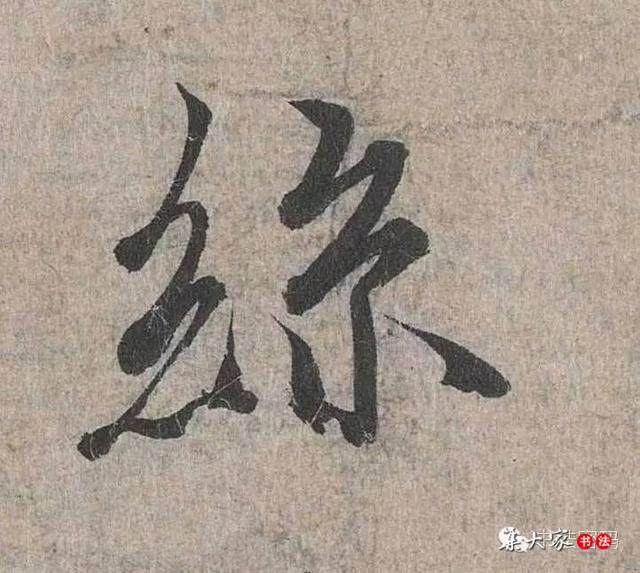 絲
集大家书法